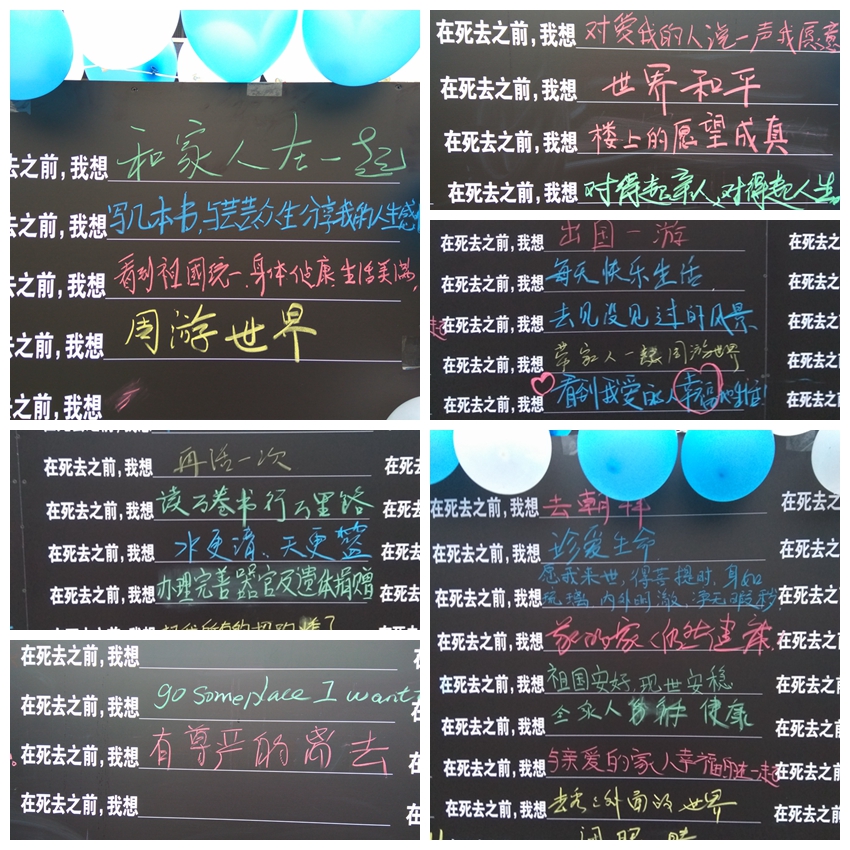 去之前，我想 和家人在一起
去之前，我想 写几本书，与芸芸众生分享我的人生感
去之前，我想 看到祖國统一，身体健康生活美满，
去之前，我想 周游世界
去之前，我想
在死去之前，我想 对爱我的人说一声我愿意
在死去之前，我想 世界和平
在死去之前，我想 楼上的愿望成真
在死去之前，我想 对得起亲人、对得起人生
在死去之前，我想 出国一游 在死去之前，
在死去之前，我想 每天快乐生活 在死去之前，
起 在死去之前，我想 去见没见过的风景 在死去之前，
在死去之前，我想 带家人一起周游世界 在死去之前，
在死去之前，我想 看到我爱的人幸福 在死去之前，
在死去之前，我想 再活一次 在死去
在死去之前，我想 读万卷书行万里路 在死去
在死去之前，我想 水更清、天更蓝 在死去
在死去之前，我想 办理完善器官及遗体捐赠 在死去
在死去之前，我想 在
在死去之前，我想 go someplace I want 在
在死去之前，我想 有尊严的离去 在
在死去之前，我想 在
在死去之前，我想 去朝拜 在死去之
在死去之前，我想 珍爱生命 在死去之
愿我来世，得菩提时，身如
在死去之前，我想 琉璃，内外明澈，净无瑕秽 在死去之
在死去之前，我想 我的家人健康 在死去之
在死去之前，我想 祖国安好，现世安稳 在死去之
在死去之前，我想 全家人 健康 在死去之
在死去之前，我想 与亲爱的家人幸福的在一起 在死去之
在死去之前，我想 去看看外面的世界 在死去之